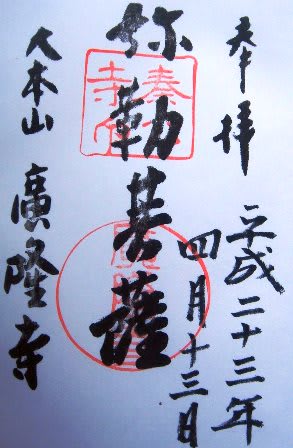 奉拝
平成二十三年
四月十三日
弥勒菩薩
大本山
廣隆寺